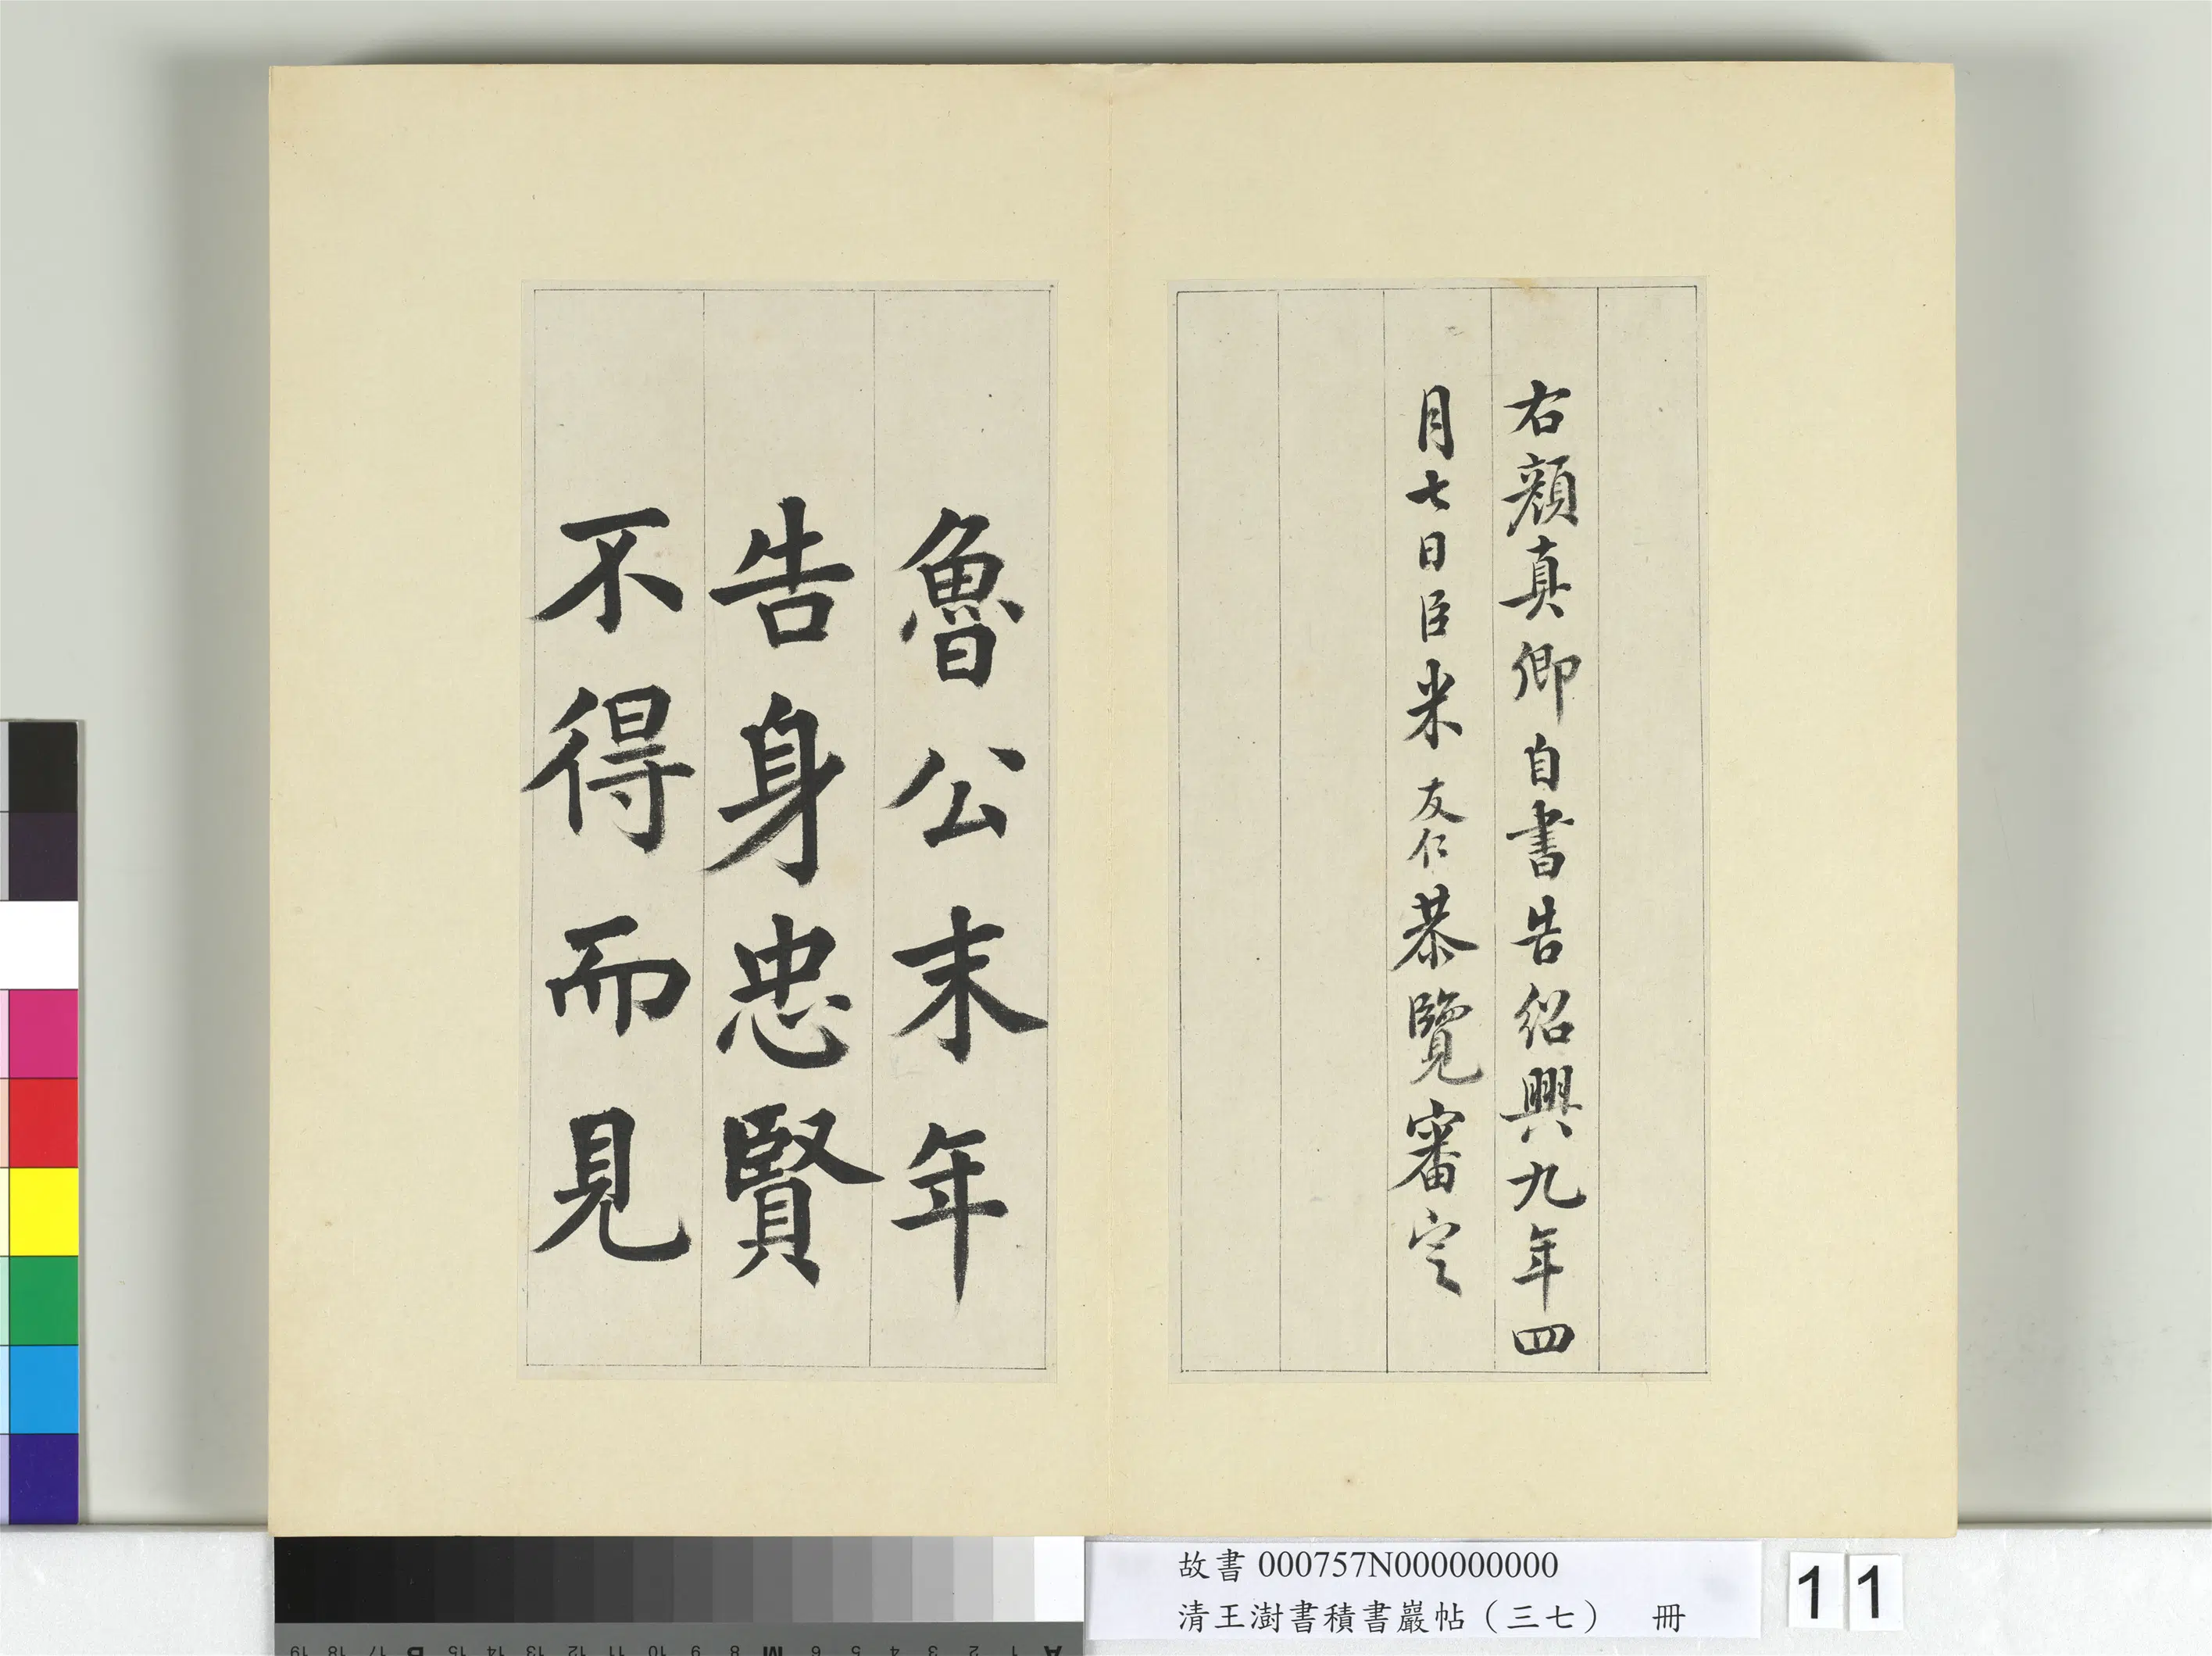 右顏真卿自書告紹興九年四
月七日臣米友仁恭覽審定
魯公末年
告身忠賢
不得而見
故書 000757N000000000
清王澍書積書巖帖（三七） 冊
11
A 1 2 3 4 5 6 M 8 9 10 11 12 13 14 15 B 17 18 19